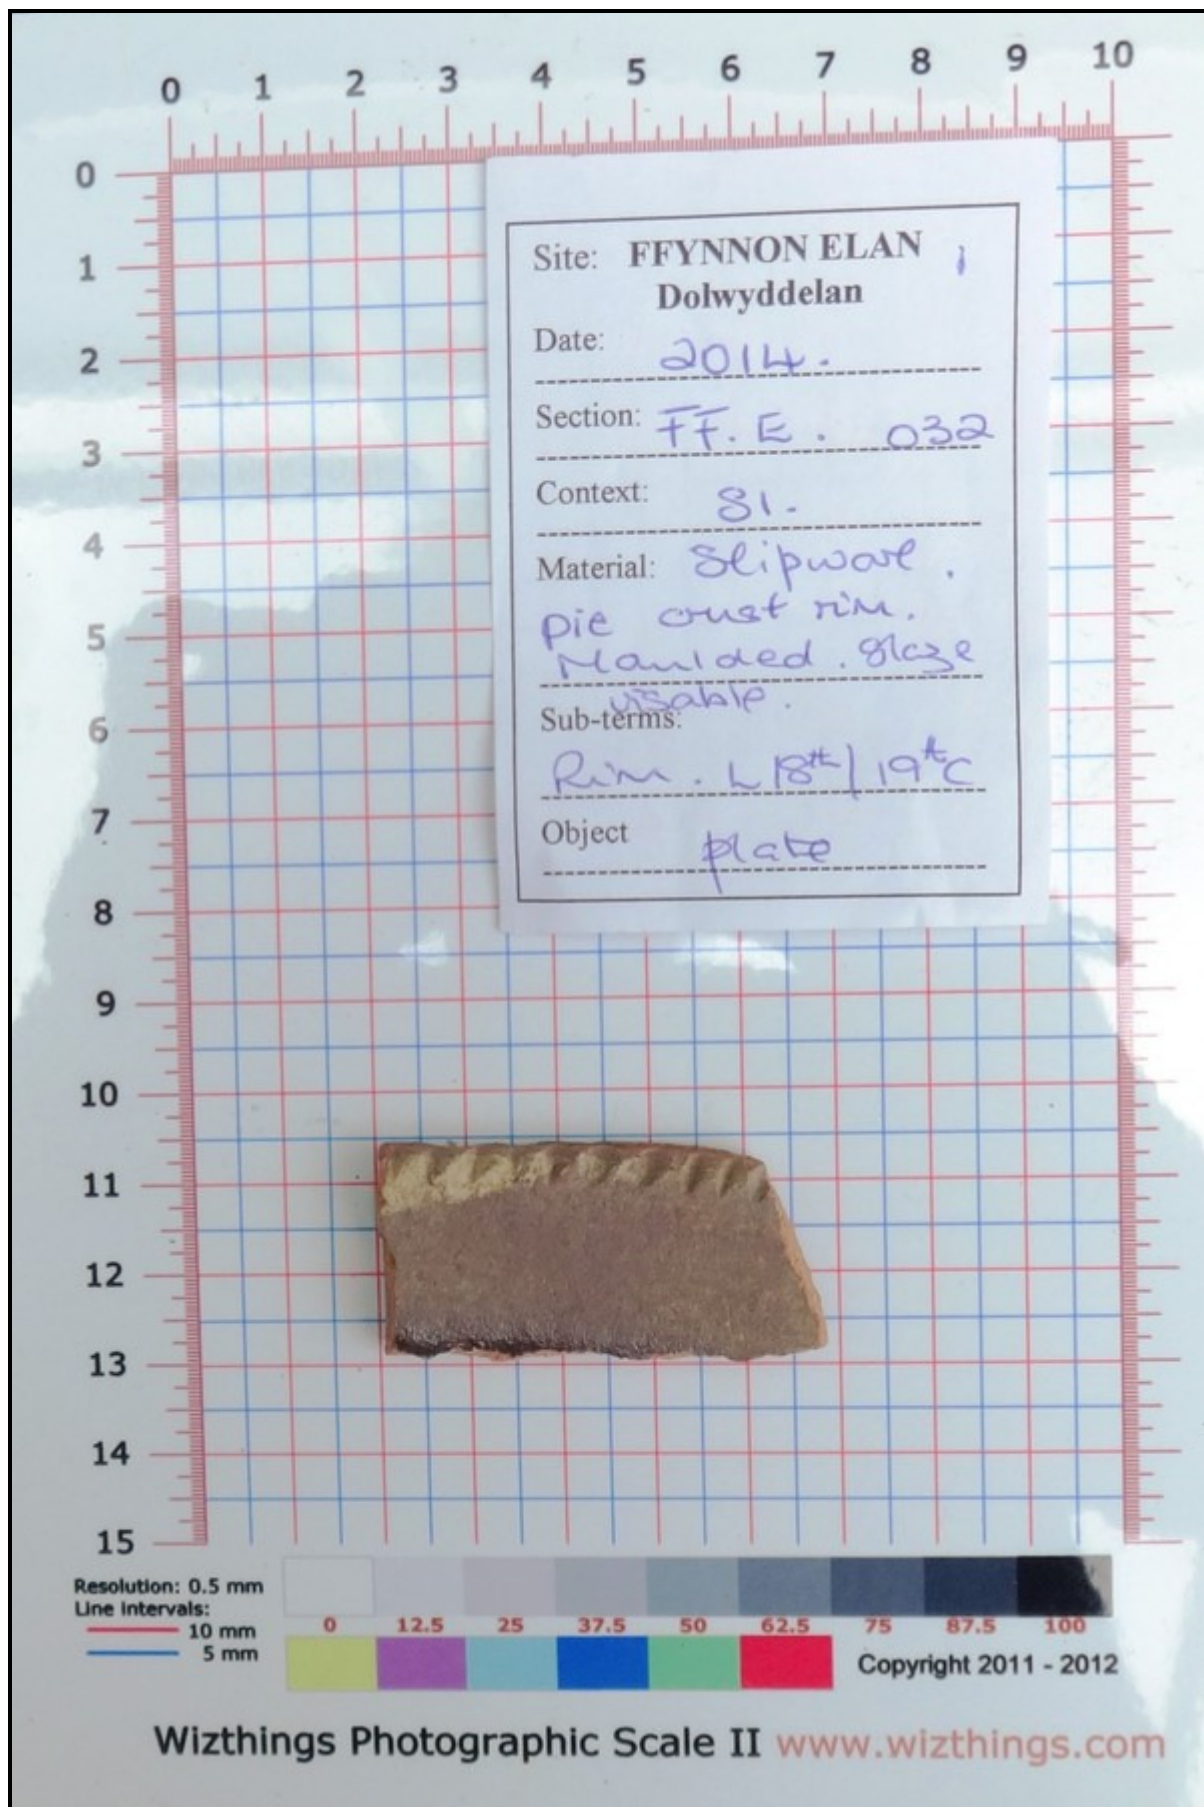 0 1 2 3 4 5 6 7 8 9 10
0
1
2
3
4
5
6
7
8
9
10
11
12
13
14
15
Site: FFYNNON ELAN
Dolwyddelan
Date: 2014.
Section: FF. E. 032
Context: S1.
Material: Slipware.
pie crust rim.
Moulded. glaze
visable.
Sub-terms:
Rim. L 18th/19thC
Object plate
Resolution: 0.5 mm
Line Intervals:
10 mm
5 mm
0 12.5 25 37.5 50 62.5 75 87.5 100
Copyright 2011 - 2012
Wizthings Photographic Scale II www.wizthings.com